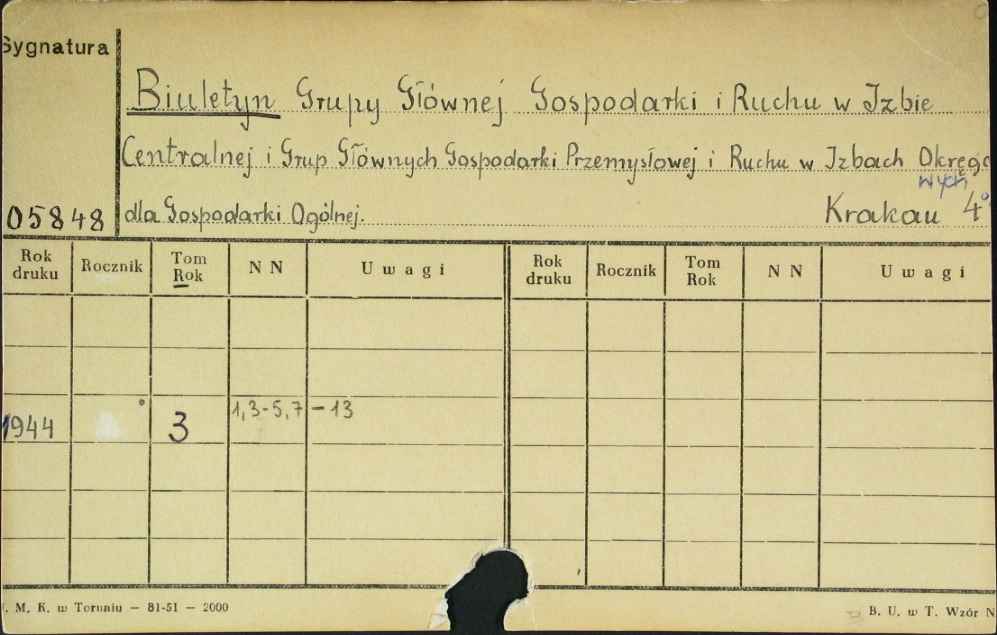 Sygnatura
Biuletyn Grupy Głównej Gospodarki i Ruchu w Izbie
Centralnej i Grup Głównych Gospodarki Przemysłowej i Ruchu w Izbach Okręgo
wych
05848 dla Gospodarki Ogólnej. Krakau 4°
Rok druku Rocznik Tom Rok N N Uwagi Rok druku Rocznik Tom Rok N N Uwagi
1944 3 1,3-5,7-13
M. K. w Toruniu — 81-51 — 2000 B. U. w T. Wzór N